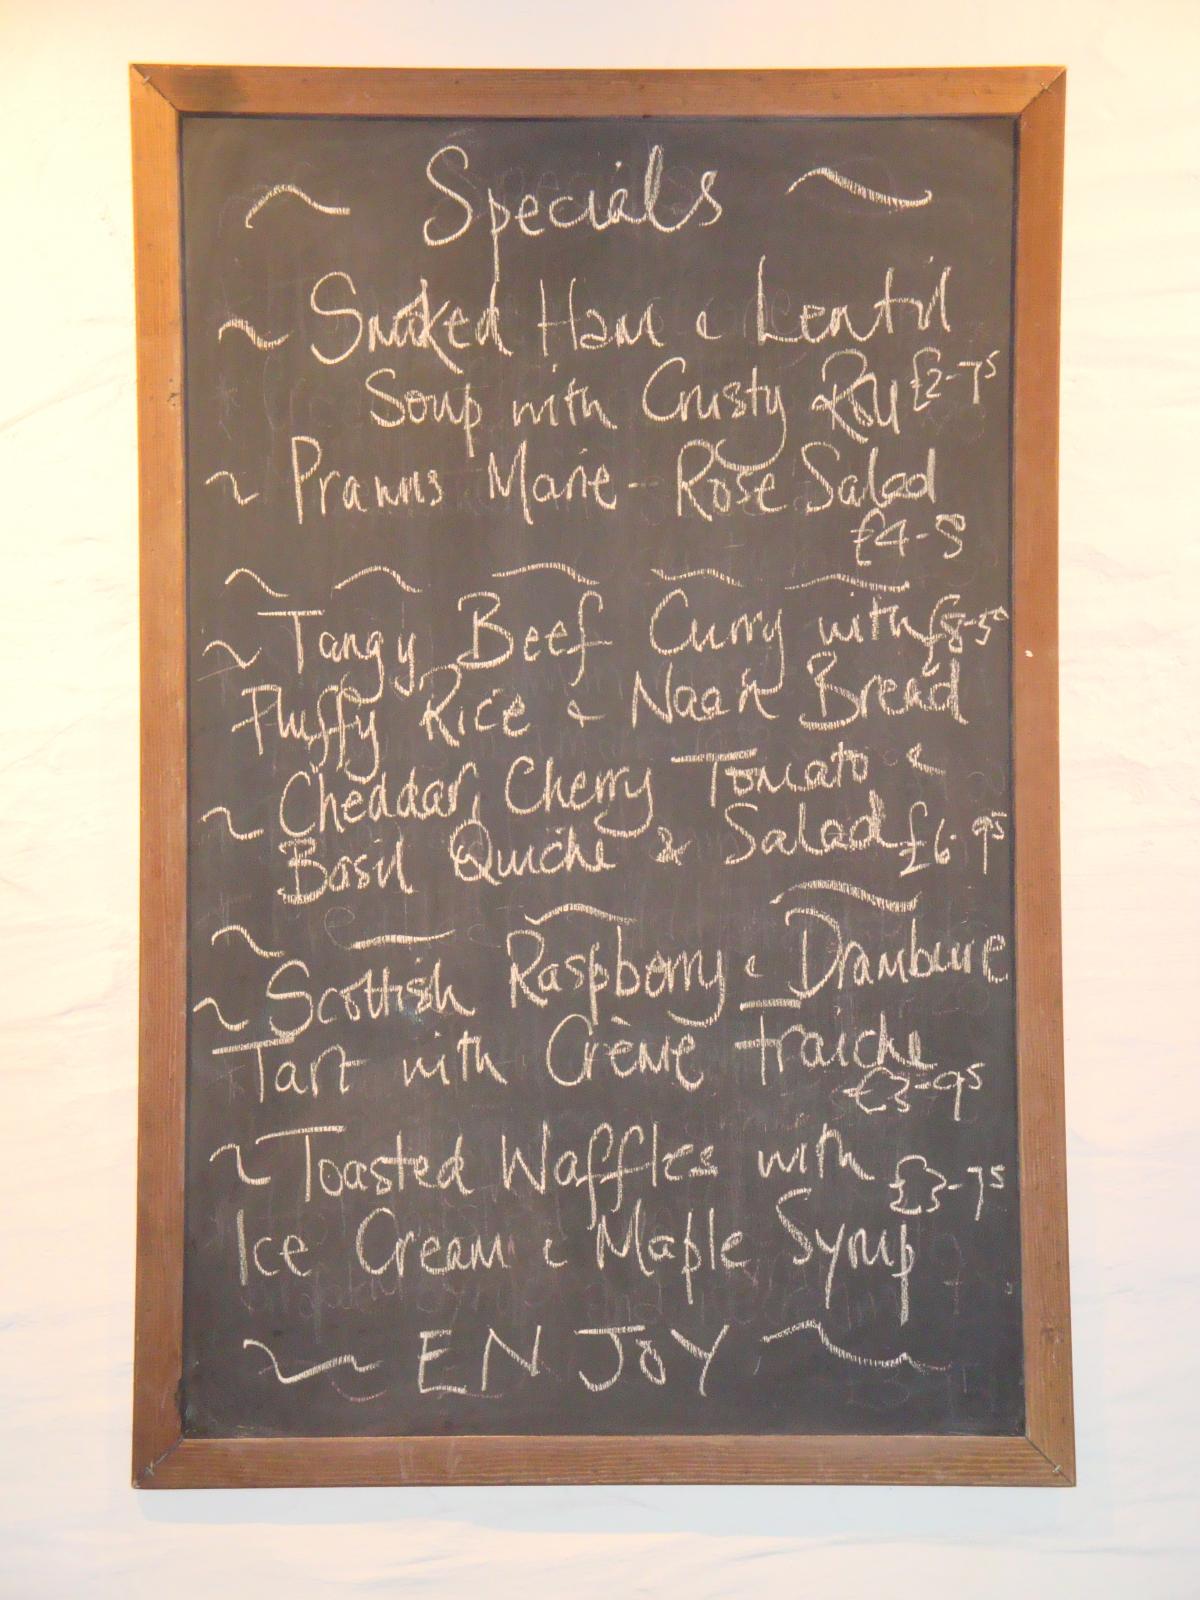 ~ Specials ~
~ Smoked Ham & Lentil
Soup with Crusty Roll £2-75
~ Prawns Marie-Rose Salad
£4-5
~ Tangy Beef Curry with £8-50
Fluffy Rice & Naan Bread
~ Cheddar, Cherry Tomato &
Basil Quiche & Salad £6.95
~ Scottish Raspberry & Drambuie
Tart with Crème Fraiche
£3-95
~ Toasted Waffles with £3-75
Ice Cream & Maple Syrup
~ ENJOY ~